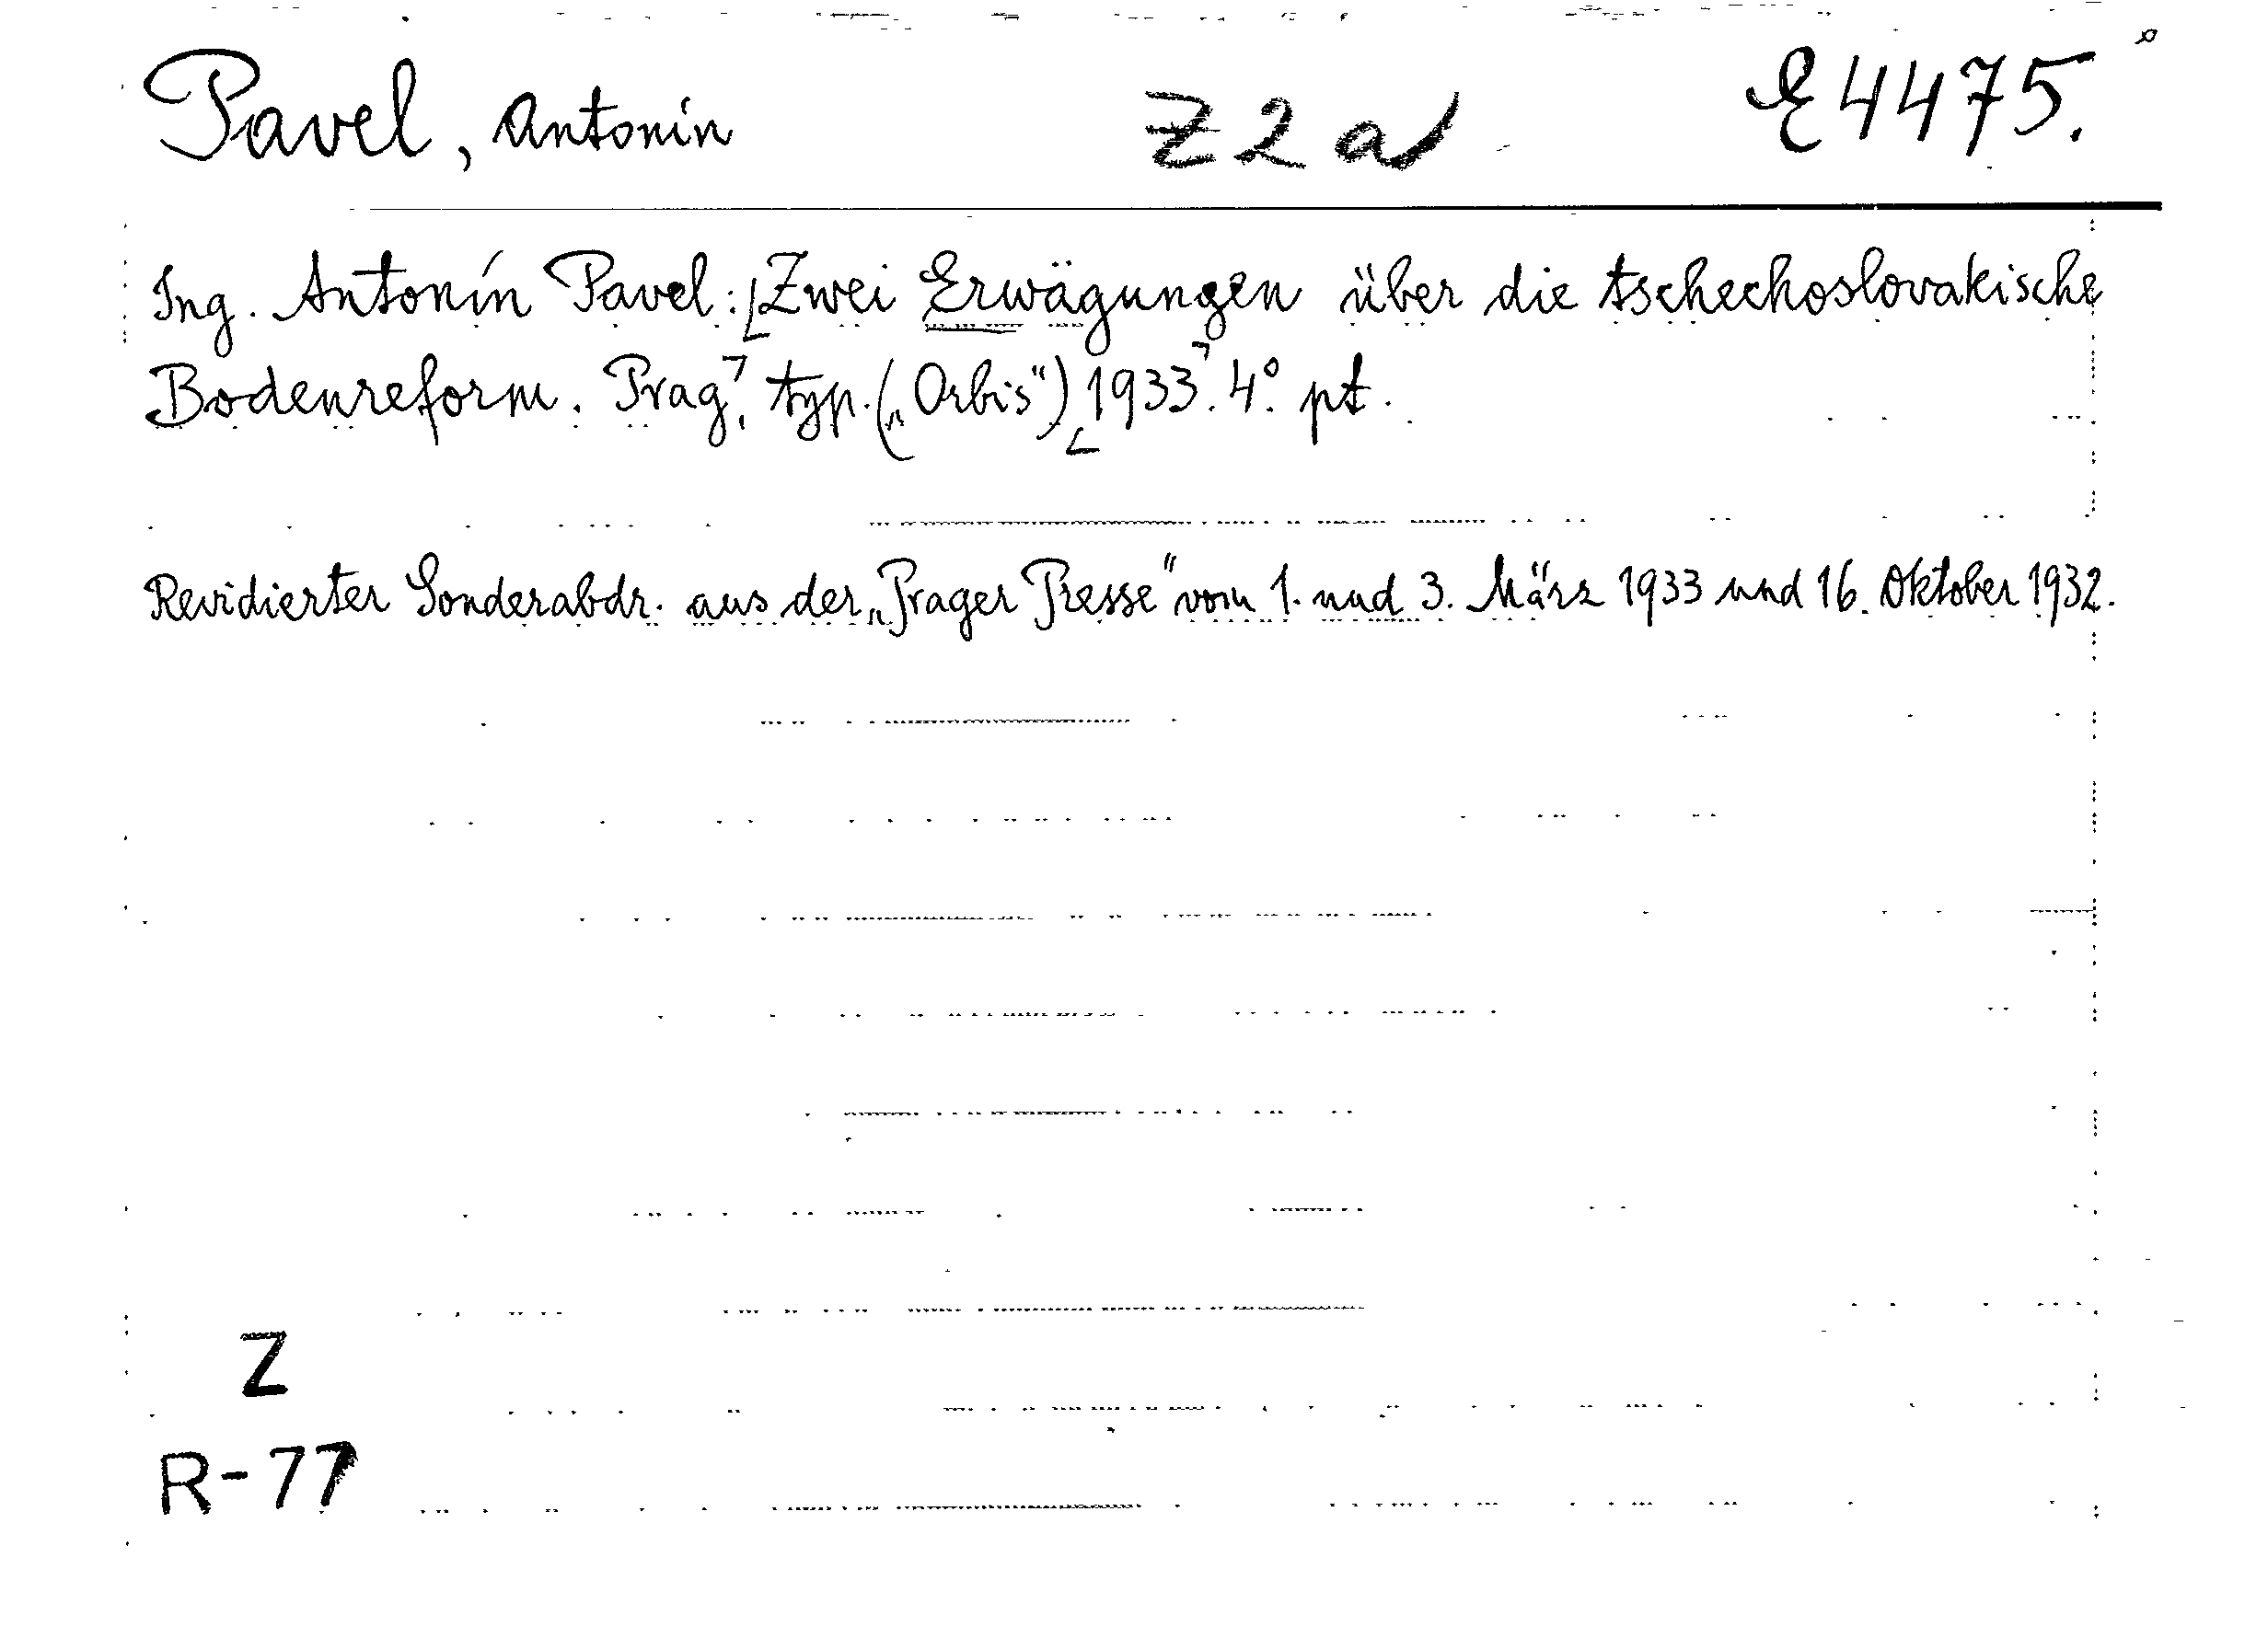 Pavel, Antonín Z 2 a E 4475.
Ing. Antonín Pavel: Zwei Erwägungen über die tschechoslovakische
Bodenreform. Prag, typ. („Orbis“) 1933. 4°. pt.
Revidierter Sonderabdr. aus der „Prager Presse“ vom 1. und 3. März 1933 und 16. Oktober 1932.
Z
R-77